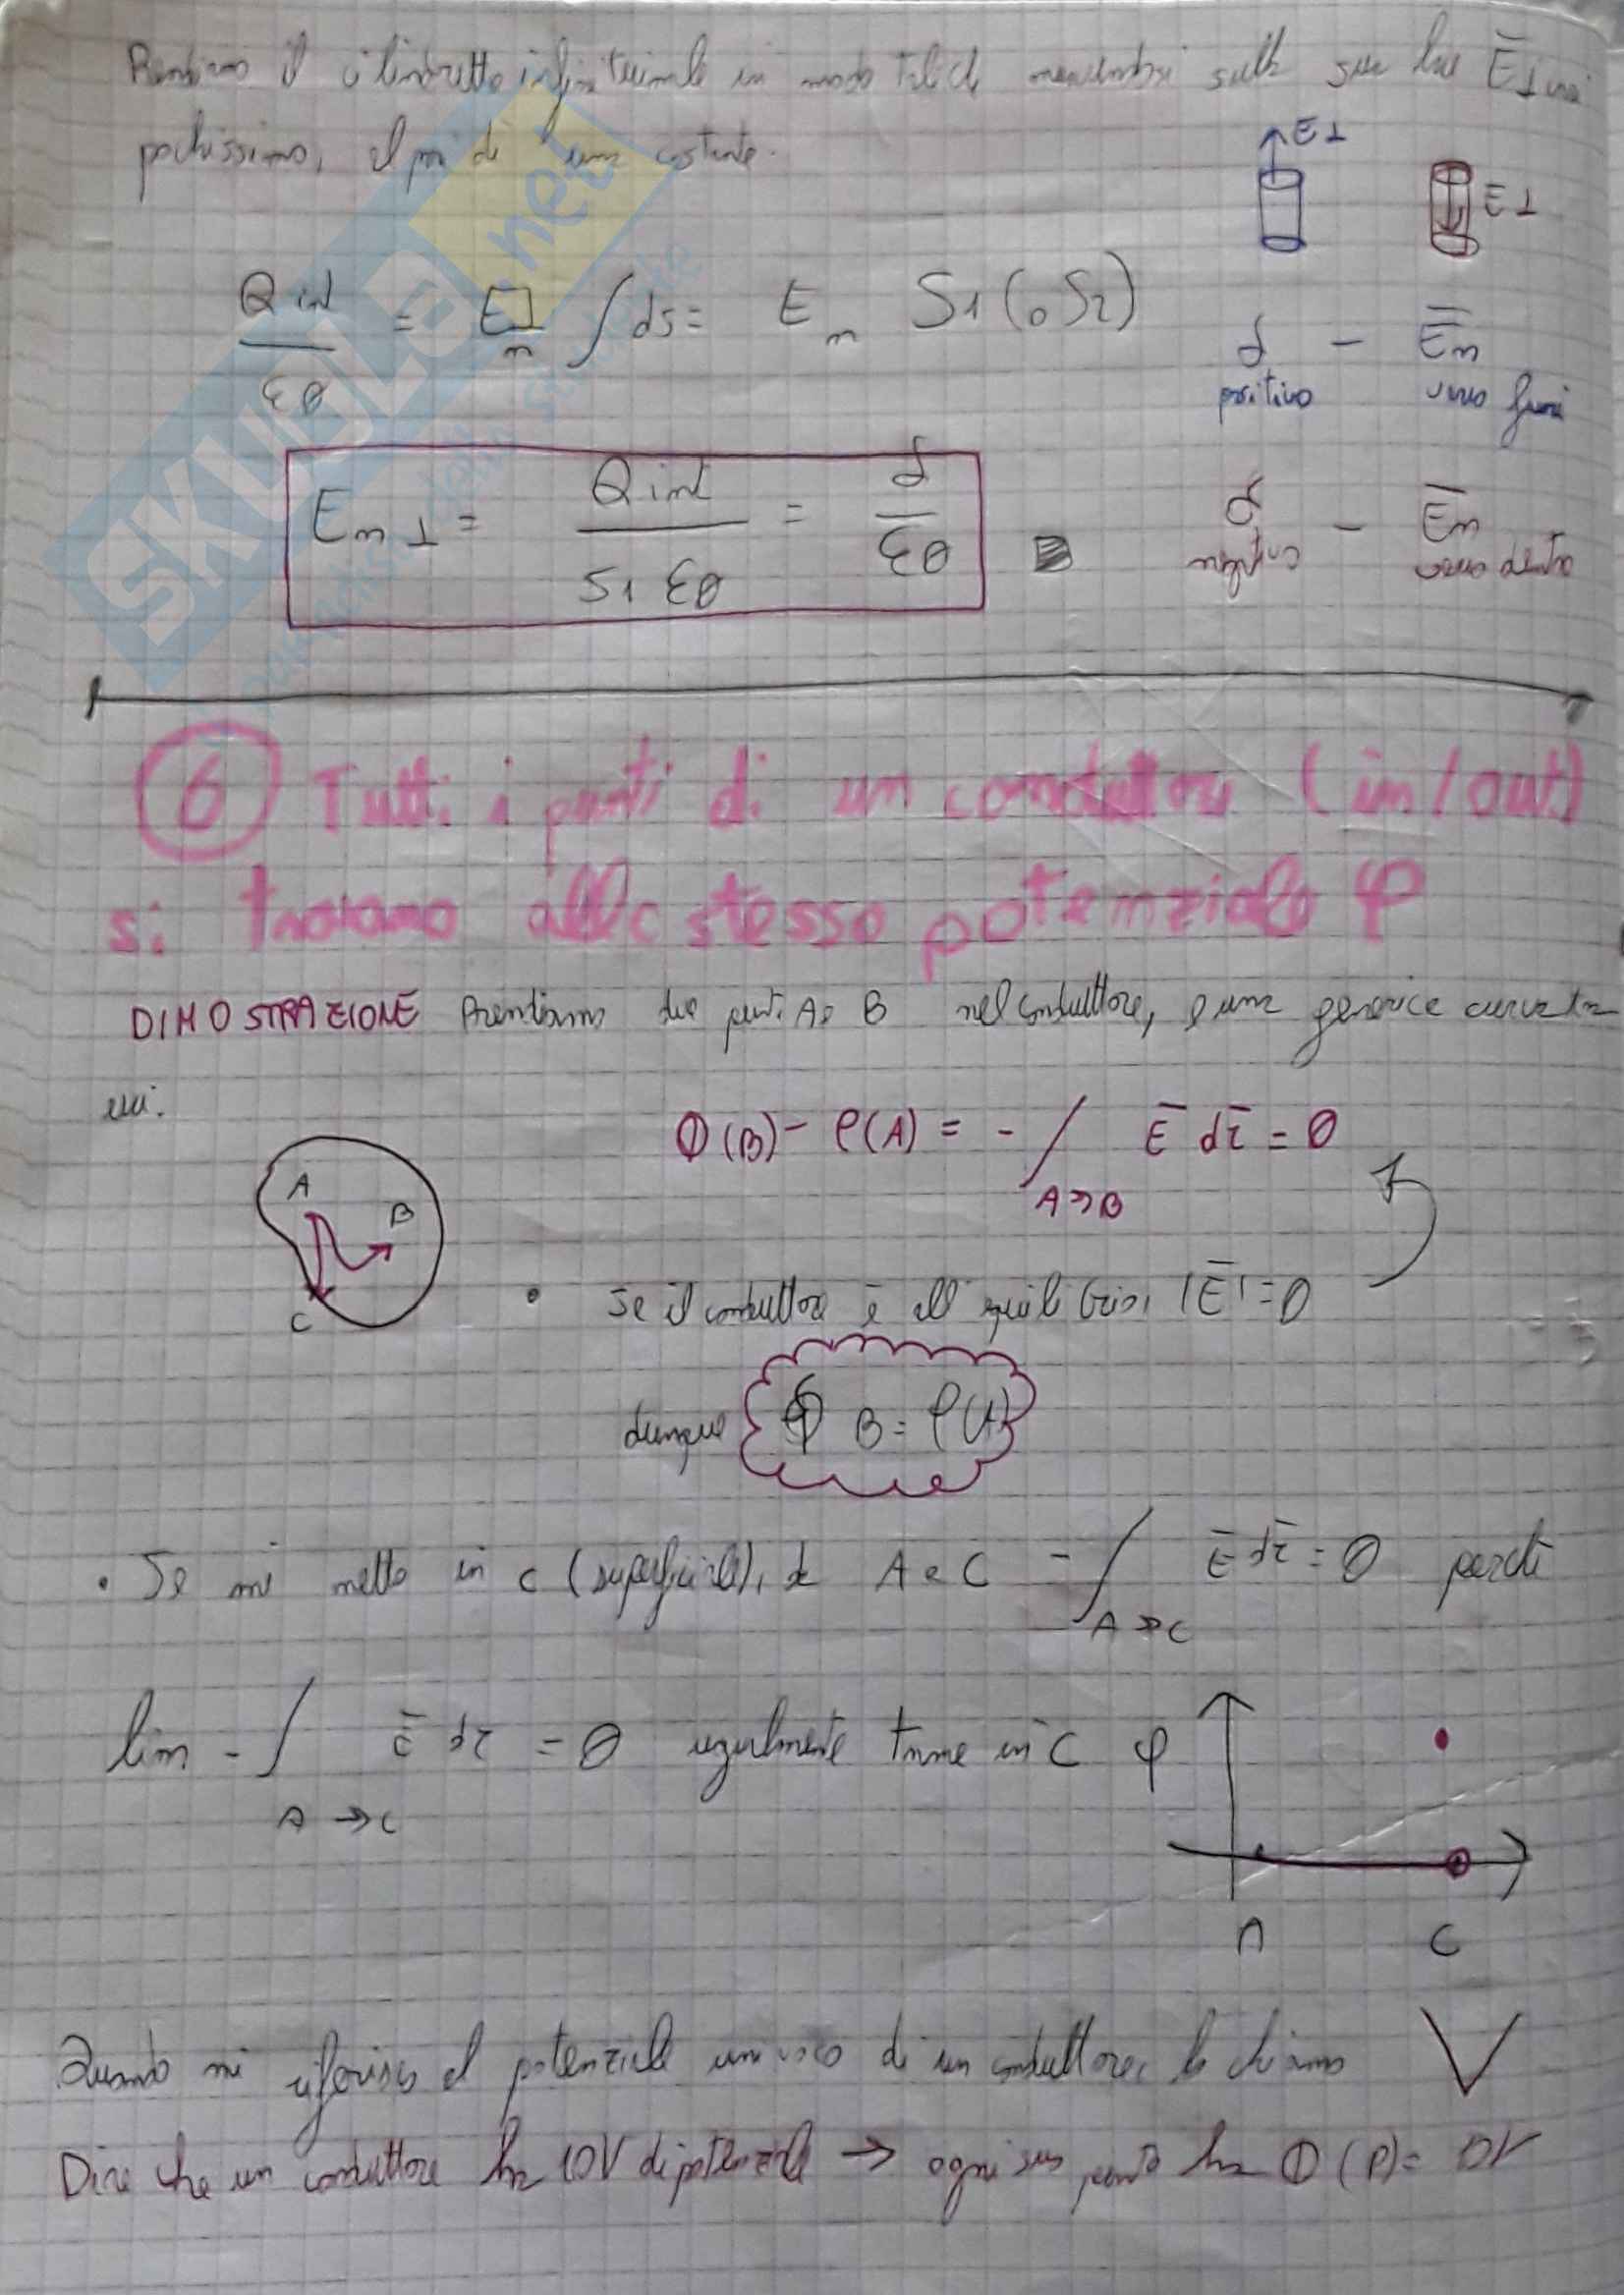 Prendiamo il cilindretto infinitesimale in modo tale che muovendosi sulla sua base E⊥ vari
pochissimo, al più di una costante.
E⊥ E⊥
Qint / εθ = E⊥n ∫ ds = En S1 (o S2)
δ positivo — En verso fuori
En⊥ = Qint / S1 εθ = δ / εθ
δ negativo — En verso dentro
⑥ Tutti i punti di un conduttore (in/out)
si trovano allo stesso potenziale φ
DIMOSTRAZIONE Prendiamo due punti A e B nel conduttore, e una generica curva tra
essi.
Φ(B) - φ(A) = - ∫ A→B E dτ = 0
A B C
• Se il conduttore è all'equilibrio, |E| = 0
dunque φ B = φ(A)
• Se mi metto in C (superficiale), da A a C - ∫ A→C E dτ = 0 perché
lim - ∫ A→C E dτ = 0 ugualmente tranne in C φ
A C
Quando mi riferisco al potenziale univoco di un conduttore, lo chiamo V
Dire che un conduttore ha 10V di potenziale → ogni suo punto ha Φ(P) = 10V
SKUOLA.net